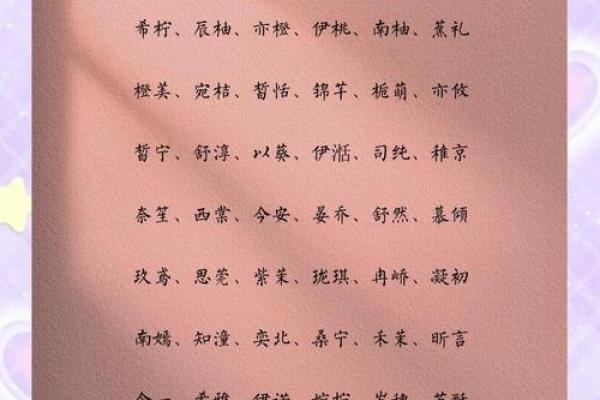 希柠、辰柚、亦橙、伊桃、南柚、蕉礼
橙美、宛桔、皙恬、锦芊、栀萌、亦攸
皙宁、舒淳、以葵、伊湉、司纯、稚京
奈笙、西棠、今安、晏乔、舒然、慕倾
玖鸢、思莞、紫茉、珑琪、冉峤、凝初
南嫣、知潼、奕北、桑宁、禾茉、昕言